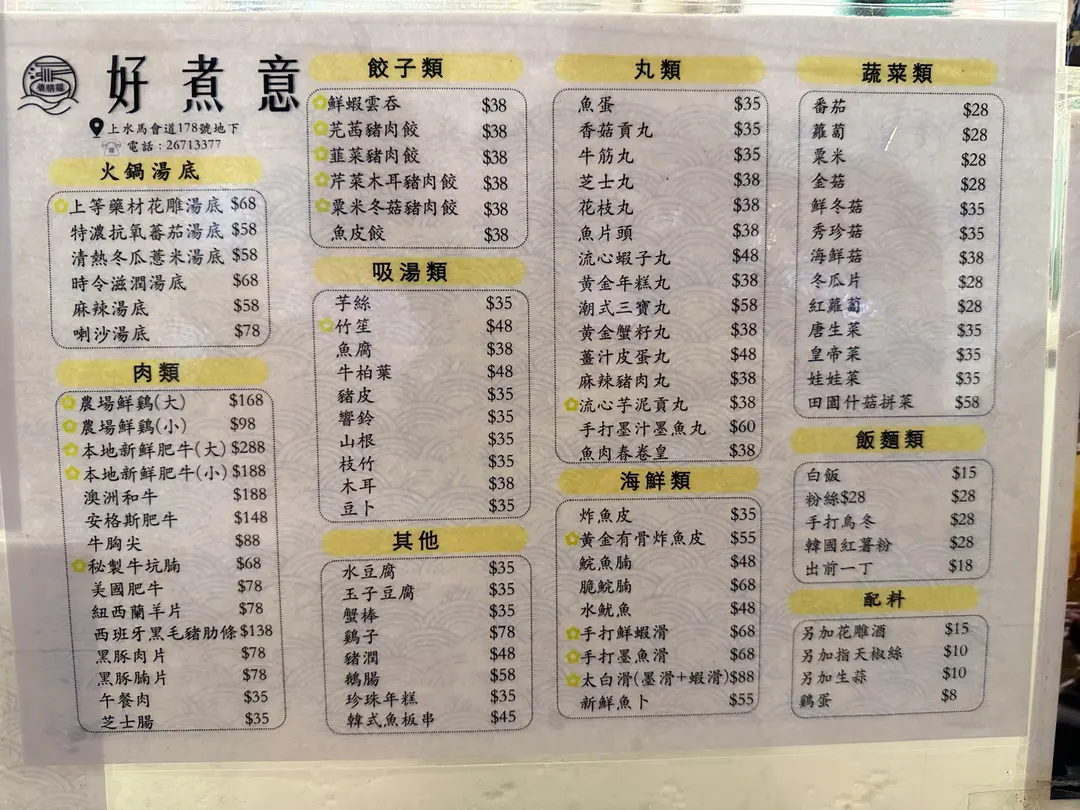 好煮意
上水馬會道178號地下
電話:26713377
火鍋湯底
上等藥材花雕湯底 $68
特濃抗氧蕃茄湯底 $58
清熱冬瓜薏米湯底 $58
時令滋潤湯底 $68
麻辣湯底 $58
喇沙湯底 $78
肉類
農場鮮鷄(大) $168
農場鮮鷄(小) $98
本地新鮮肥牛(大) $288
本地新鮮肥牛(小) $188
澳洲和牛 $188
安格斯肥牛 $148
牛胸尖 $88
秘製牛坑腩 $68
美國肥牛 $78
紐西蘭羊片 $78
西班牙黑毛豬肋條 $138
黑豚肉片 $78
黑豚腩片 $78
午餐肉 $35
芝士腸 $35
餃子類
鮮蝦雲吞 $38
芫茜豬肉餃 $38
韮菜豬肉餃 $38
芹菜木耳豬肉餃 $38
粟米冬菇豬肉餃 $38
魚皮餃 $38
吸湯類
芋絲 $35
竹笙 $48
魚腐 $38
牛柏葉 $48
豬皮 $35
響鈴 $35
山根 $35
枝竹 $35
木耳 $38
豆卜 $35
其他
水豆腐 $35
玉子豆腐 $35
蟹棒 $35
鷄子 $78
豬潤 $48
鵝腸 $58
珍珠年糕 $35
韓式魚板串 $45
丸類
魚蛋 $35
香菇貢丸 $35
牛筋丸 $35
芝士丸 $38
花枝丸 $38
魚片頭 $38
流心蝦子丸 $48
黃金年糕丸 $38
潮式三寶丸 $58
黃金蟹籽丸 $38
薑汁皮蛋丸 $48
麻辣豬肉丸 $38
流心芋泥貢丸 $38
手打墨汁墨魚丸 $60
魚肉春卷皇 $38
海鮮類
炸魚皮 $35
黃金有骨炸魚皮 $55
鯇魚腩 $48
脆鯇腩 $68
水魷魚 $48
手打鮮蝦滑 $68
手打墨魚滑 $68
太白滑(墨滑+蝦滑) $88
新鮮魚卜 $55
蔬菜類
番茄 $28
蘿蔔 $28
粟米 $28
金菇 $28
鮮冬菇 $35
秀珍菇 $35
海鮮菇 $38
冬瓜片 $28
紅蘿蔔 $28
唐生菜 $35
皇帝菜 $35
娃娃菜 $35
田園什菇拼菜 $58
飯麵類
白飯 $15
粉絲$28 $28
手打烏冬 $28
韓國紅薯粉 $28
出前一丁 $18
配料
另加花雕酒 $15
另加指天椒絲 $10
另加生蒜 $10
鷄蛋 $8